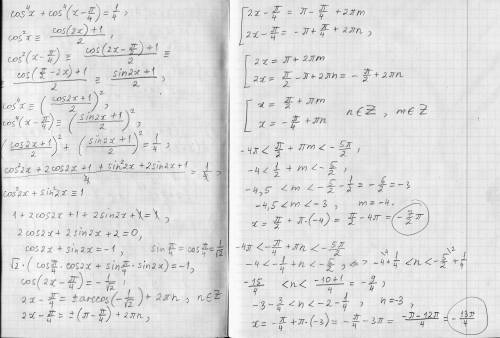 cos⁴x + cos⁴(x - π/4) = 1/4 ;
cos²x ≡ (cos(2x)+1)/2 ;
cos²(x - π/4) ≡ (cos(2x - π/2)+1)/2 ≡
(cos(π/2 - 2x)+1)/2 ≡ (sin2x+1)/2 ;
cos⁴x ≡ ((cos2x+1)/2)² ;
cos⁴(x - π/4) ≡ ((sin2x+1)/2)² ;
((cos2x+1)/2)² + ((sin2x+1)/2)² = 1/4 ;
(cos²2x + 2cos2x + 1 + sin²2x + 2sin2x + 1)/4 = 1/4 ;
cos²2x + sin²2x ≡ 1
1 + 2cos2x + 1 + 2sin2x + 1 = 1 ;
2cos2x + 2sin2x + 2 = 0,
cos2x + sin2x = -1, sin π/4 = cos π/4 = 1/√2
√2·(cos π/4 · cos2x + sin π/4 · sin2x) = -1,
cos(2x - π/4) = -1/√2 ;
2x - π/4 = ± arccos(-1/√2) + 2πn, n∈Z
2x - π/4 = ±(π - π/4) + 2πn ;
[ 2x - π/4 = π - π/4 + 2πm
2x - π/4 = -π + π/4 + 2πn ,
[ 2x = π + 2πm
2x = π/2 - π + 2πn = -π/2 + 2πn
[ x = π/2 + πm
x = -π/4 + πn n∈Z , m∈Z
-4π < π/2 + πm < -5π/2 ,
-4 < 1/2 + m < -5/2 ,
-4,5 < m < -5/2 - 1/2 = -6/2 = -3
-4,5 < m < -3 , m = -4.
x = π/2 + π·(-4) = π/2 - 4π = -7/2 π
-4π < -π/4 + πn < -5π/2
-4 < -1/4 + n < -5/2 , <=> -4 + 1/4 < n < -5/2 + 1/4
-15/4 < n < (-10+1)/4 = -9/4
-3 - 3/4 < n < -2 - 1/4 , n = -3
x = -π/4 + π·(-3) = -π/4 - 3π = (-π - 12π)/4 = -13π/4